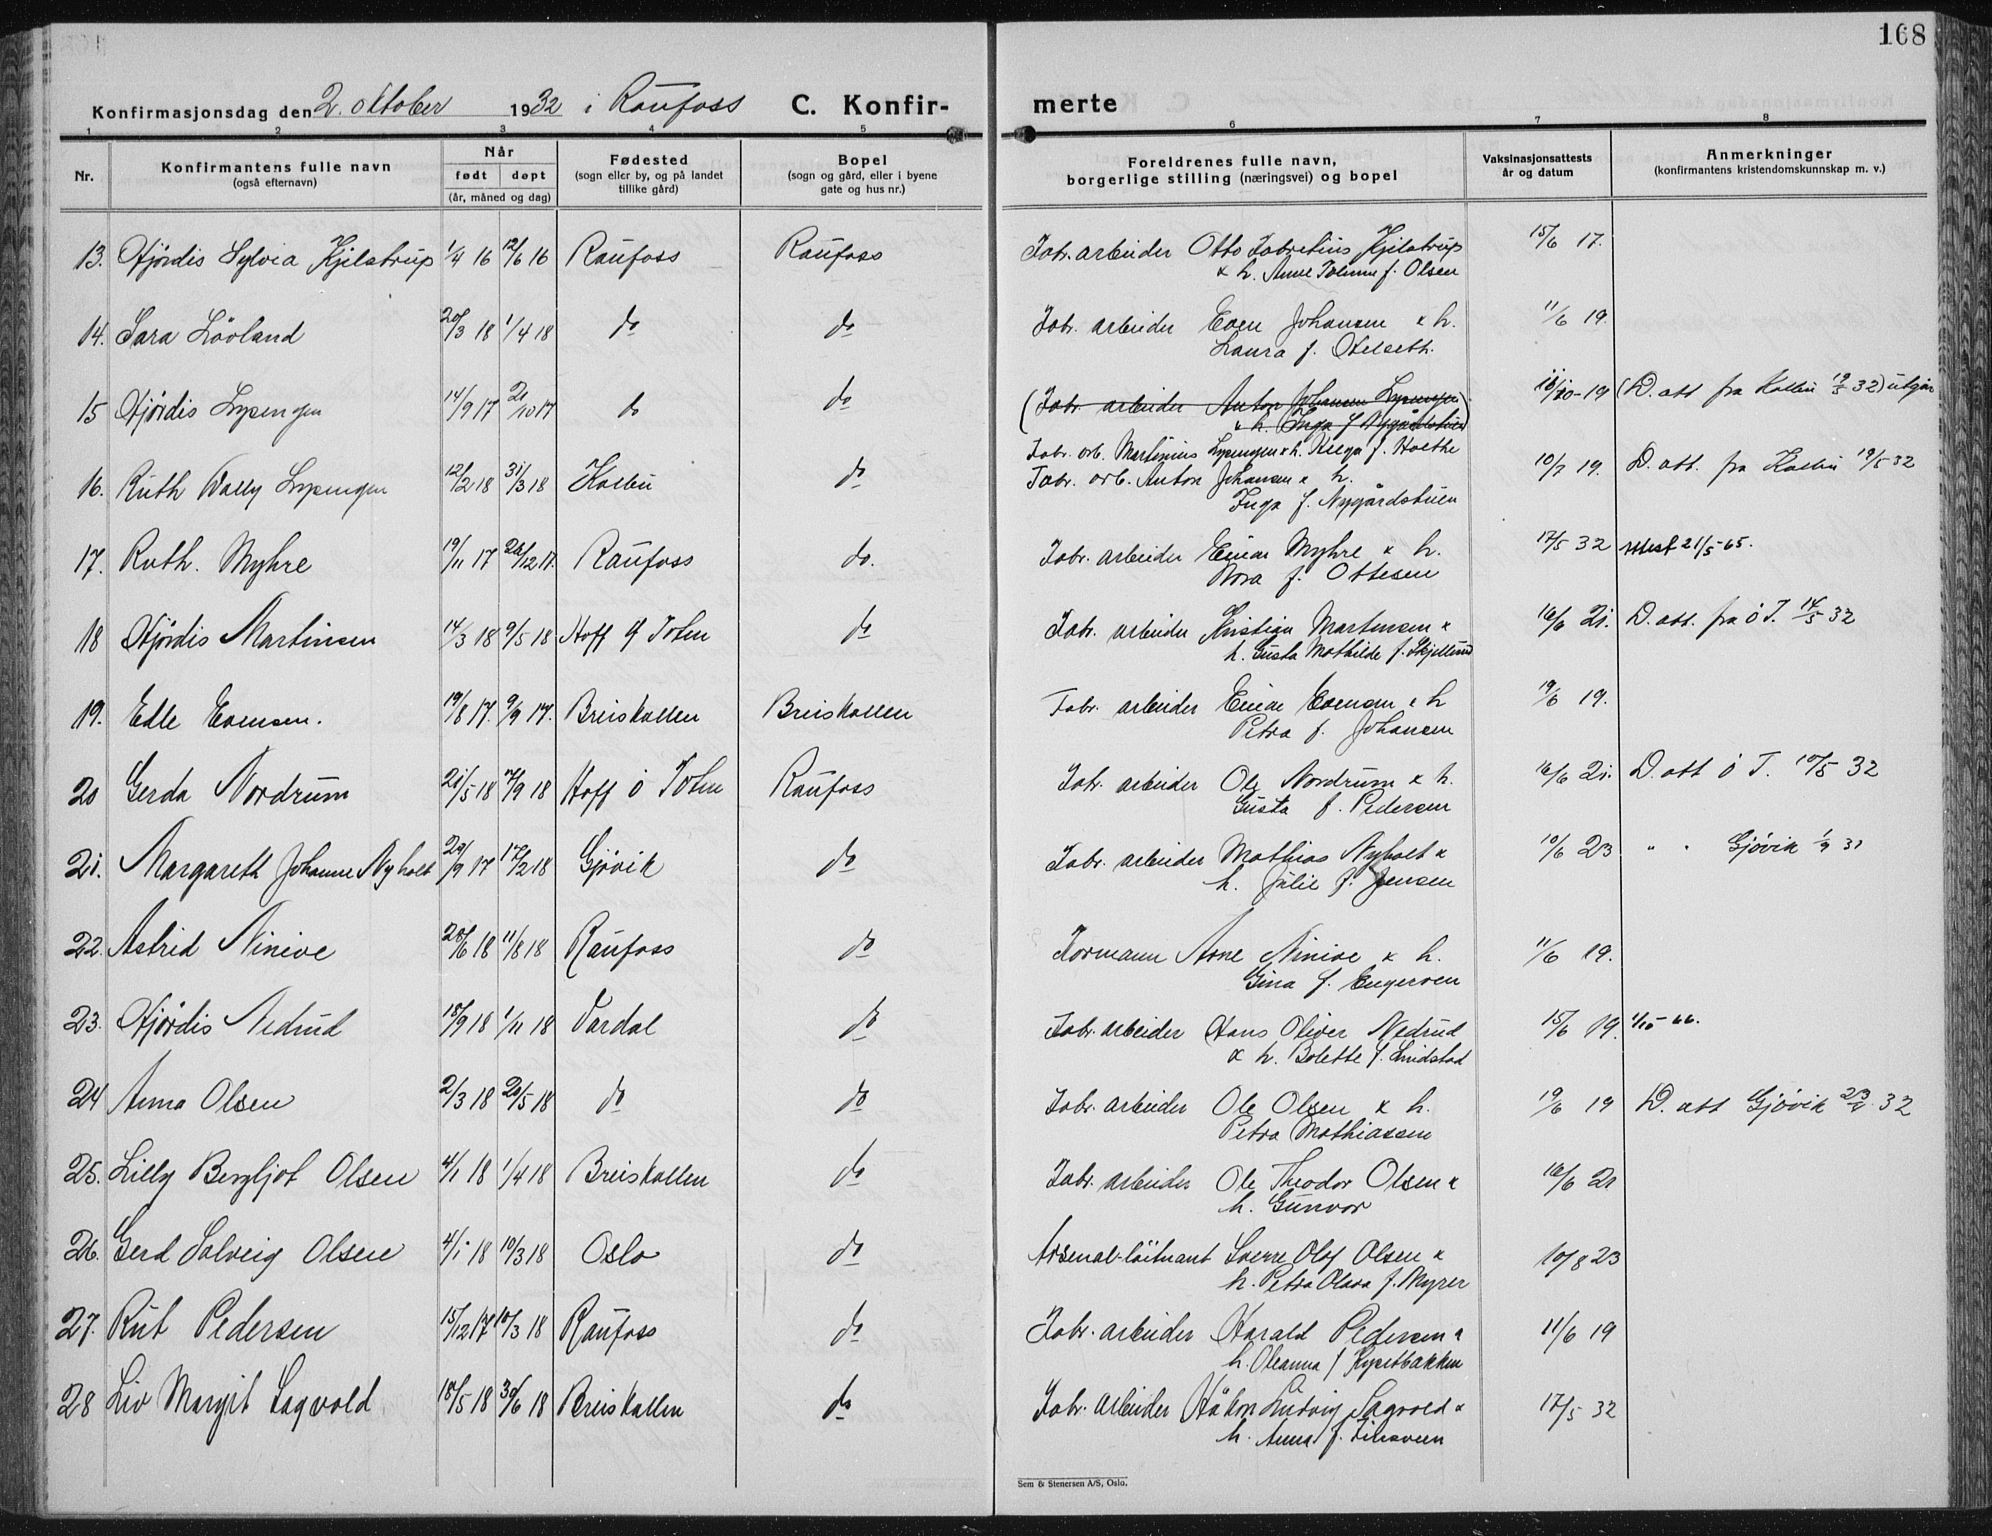 168
Konfirmasjonsdag den 2. oktober 1932 i Raufoss C. Konfir-
merte
1 2 3 4 5 6 7 8
Nr.
Konfirmantens fulle navn
(også efternavn)
Når
født døpt
(år, måned og dag)
Fødested
(sogn eller by, og på landet
tillike gård)
Bopel
(sogn og gård, eller i byene
gate og hus nr.)
Foreldrenes fulle navn,
borgerlige stilling (næringsvei) og bopel
Vaksinasjonsattests
år og datum
Anmerkninger
(konfirmantens kristendomskunnskap m. v.)
13. Hjördis Sylvia Kjelstrup 1/4 16 12/6 16 Raufoss Raufoss Fabr. arbeider Otto Fabretius Kjelstrup 15/6 17.
& h. Anne f. Olsen
14. Sara Lövland 20/3 18 1/4 18 do do Fabr. arbeider Even Johansen & h. 11/6 19.
Laura f.
15 Hjördis Lysengen 14/9 17 21/10 17 do do (Fabr. arbeider Anton Johansen Lysengen 18/10-19 (D. att fra Kolbu 19/5 32) utgår
& h. Inga f. Nygårdstuen)
Fabr. arb. Martinius Lysengen & h. Helga f. Holthe
16. Ruth Wally Lysengen 12/2 18 31/3 18 Kolbu do Fabr. arb. Anton Johansen & h. 10/7 19. D. att. fra Kolbu 19/5 32
Inga f. Nygårdstuen
17. Ruth. Myhre 19/11 17 26/12 17. Raufoss do. Fabr. arbeider Einar Myhre & h. 12/5 32 attest 21/5-65.
Nora f. Ottesen
18 Hjördis Martinsen 14/3 18 9/5 18 Hoff Ö Toten do Fabr. arbeider Kristian Martinsen & 16/6 21. D. att. fra ö T. 14/5 32
h. Gusta Mathilde f. Skjellerud
19. Edle Evensen. 19/8 17. 9/9 17. Breiskallen Breiskallen Fabr. arbeider Einar Evensen & h 19/6 19.
Petra f. Johansen
20 Gerda Nordrum 21/5 18 14/9 18 Hoff ö Toten Raufoss Fabr. arbeider Ole Nordrum & h. 16/6 21. D. att ö T. 10/5 32
Gusta f. Pedersen
21. Margareth Johanne Nyholt 29/9 17 17/2 18 Gjövik do Fabr. arbeider Mathias Nyholt & 10/6 23 " " Gjövik 1/9 31
h. Julie f. Jensen
22. Astrid Ninive 28/6 18 11/8 18 Raufoss do Formann Arne Ninive & h. 11/6 19.
Gina f. Engerven
23. Hjördis Nedrud 18/9 18 1/11 18 Vardal do Fabr. arbeider Hans Oliver Nedrud 15/6 19. 1/10-66.
& h. Bolette f. Lindstad
24 Anna Olsen 2/3 18 20/5 18 do do Fabr. arbeider Ole Olsen & h. 19/6 19 D. att Gjövik 23/4 32
Petra Mathiassen
25. Lilly Bergljot Olsen 4/1 18 1/4 18 Breiskallen do Fabr. arbeider Ole Theodor Olsen & 16/6 21
h. Gunvor
26. Gerd Solveig Olsen 4/1 18 10/3 18 Oslo do Arsenal-löitnant Sverre Olaf Olsen & 10/8 23
h. Petra Olava f. Myrer
27. Rut Pedersen 15/12 17 10/3 18 Raufoss do Fabr. arbeider Harald Pedersen & 11/6 19
h. Oleanna f
28 Liv Margit Sagvold 18/5 18 30/6 18 Breiskallen do Fabr. arbeider Håkon Ludvig Sagvold & 17/5 32
h. Anna f. Finsveen
Sem & Stenersen A/S, Oslo.